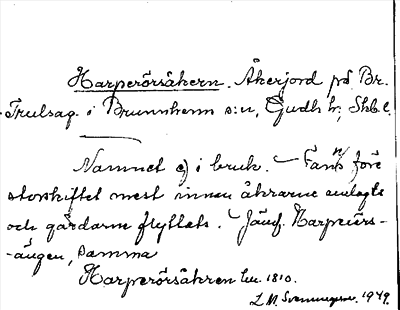 Harperörsåkern. Åkerjord på Br.
Trulsag. i Brunnhem s:n, Gudh h; Skbl.
Namnet ej i bruk. - Fanns före
storskiftet mest innan åkrarne enlagts
och gårdarne flyttats. - Jämf. Harpeörs-
-ängen, samma
Harperörsåkren lm. 1810.
L. M. Svenungsson. 1949.